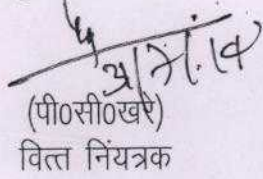 (पी0सी0खरे)
वित्त निंयत्रक